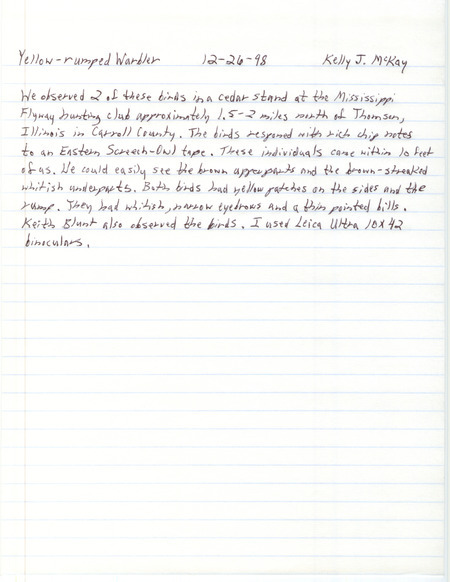 Yellow-rumped Warbler 12-26-98 Kelly J. McKay
We observed 2 of these birds in a cedar stand at the Mississippi
Flyway hunting club approximately 1.5-2 miles north of Thomson,
Illinois in Carroll County. The birds respond with rich chip notes
to an Eastern Screech-Owl tape. These individuals came within 10 feet
of us. We could easily see the brown upperparts and the brown-streaked
whitish underparts. Both birds had yellow patches on the sides and the
rump. They had whitish, narrow eyebrows and a thin pointed bills.
Keith Blunt also observed the birds. I used Leica Ultra 10x42
binoculars.